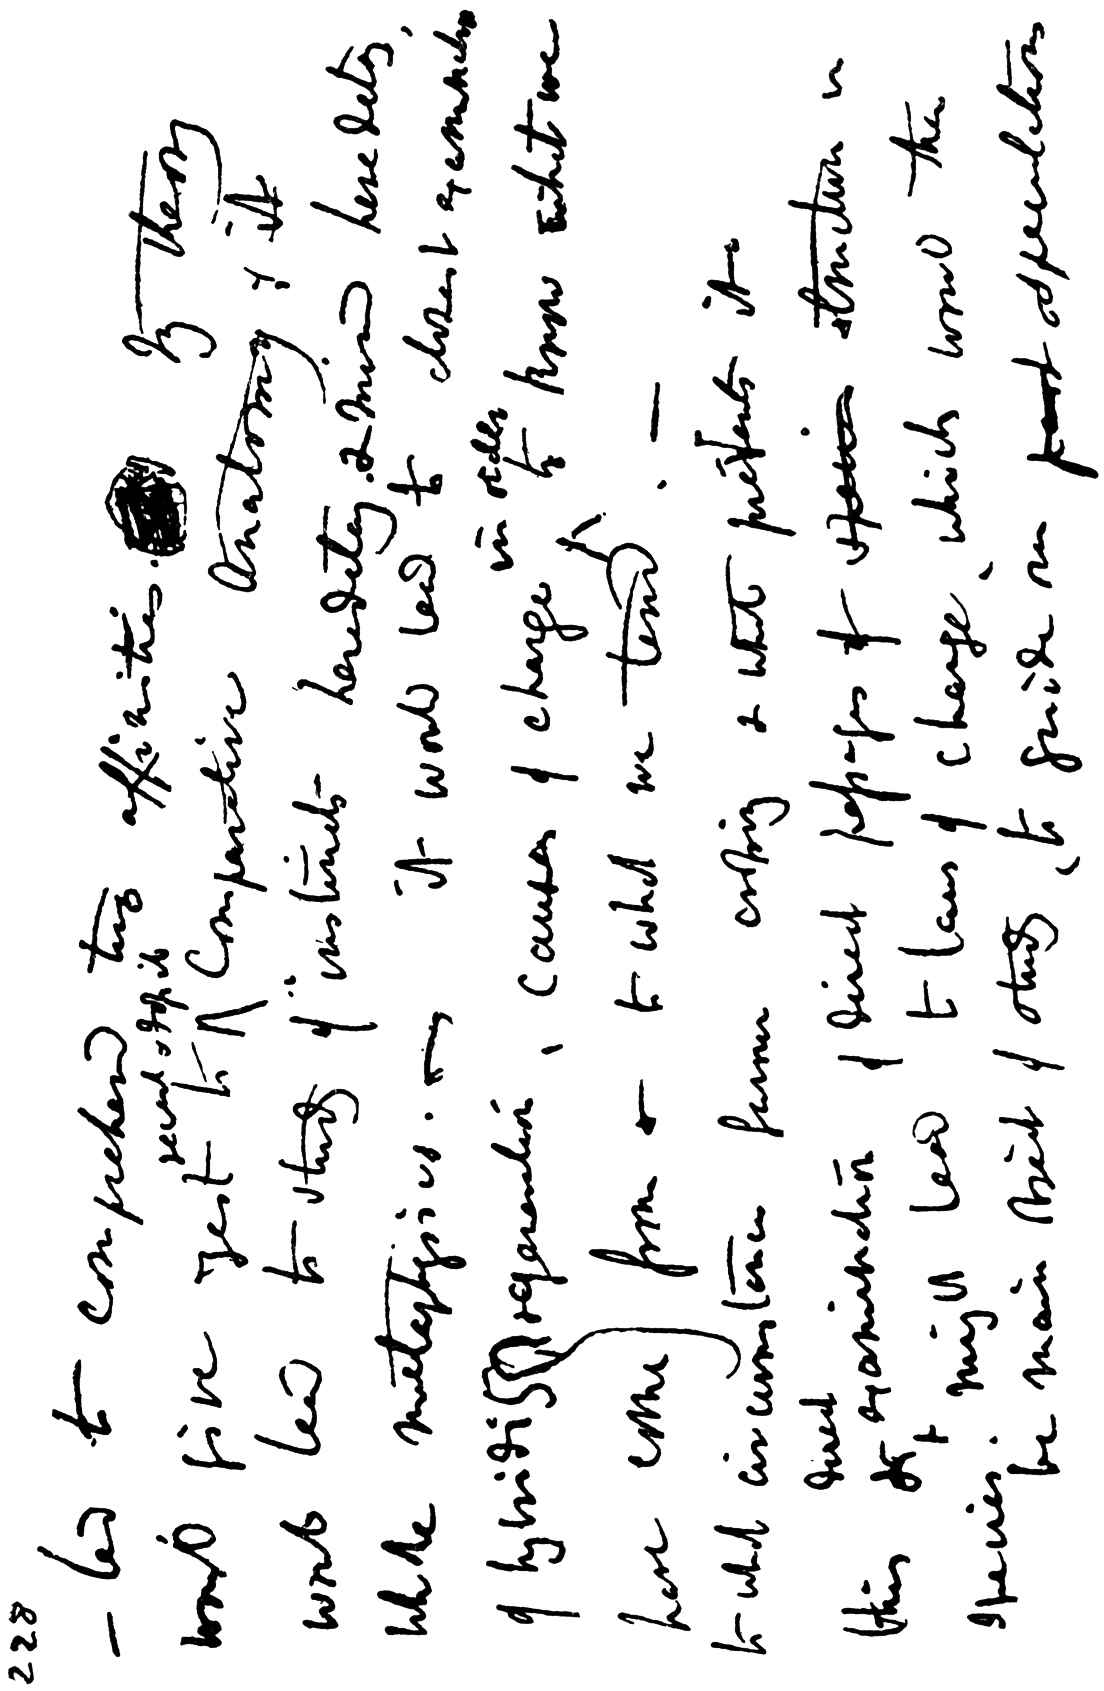 228
– led to comprehend true affinities. My theory
would give zest to recent & Fossil Comparative Anatomy, & it
would lead to study of instincts heredetary. & mind heredetary,
whole metaphysics. – it would lead to closest examination
of hybridity regeneration, causes of change in order to know what we
have come from & to what we tend. –
to what circumstances favour crossing & what prevents it –
this direct & examination of direct passages of their structure in
species. might lead to laws of change, which would then
be main object of study, to guide our past speculations